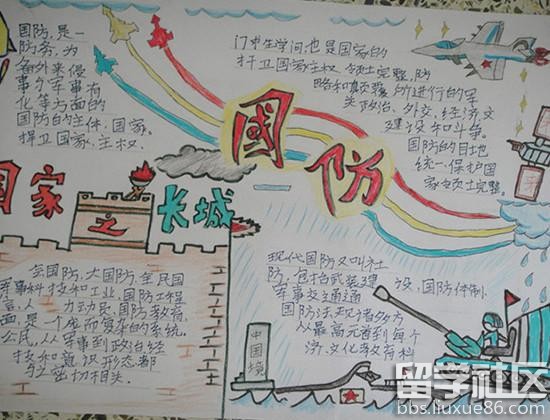 国防,是一
防务,为
备外来侵
事小军事有
化等方面的
国防的主体,国家。
捍卫国家,主权、
门学生学问也是国家的
捍卫国家主权、领土完整,防
略和颠覆 所进行的军
关政治、外交、经济、文
建设和斗争。
国防的目地
统一,保护国
家领土完整
國防
国家之长城
全国防,大国防,全民国
军事科技和工业,国防工程
人 力动员,国防教育,
面是一个庞而复杂的系统。
公民,从军事到政治经
技和意识形态都
与之密切相关.
现代国防又叫社
防,包括武装建 设,国防体制.
军事交通通
国防法,及诸多方
从最高元首到每个
济、文化教育科
中国境
留学社区
bbs.liuxue86.com